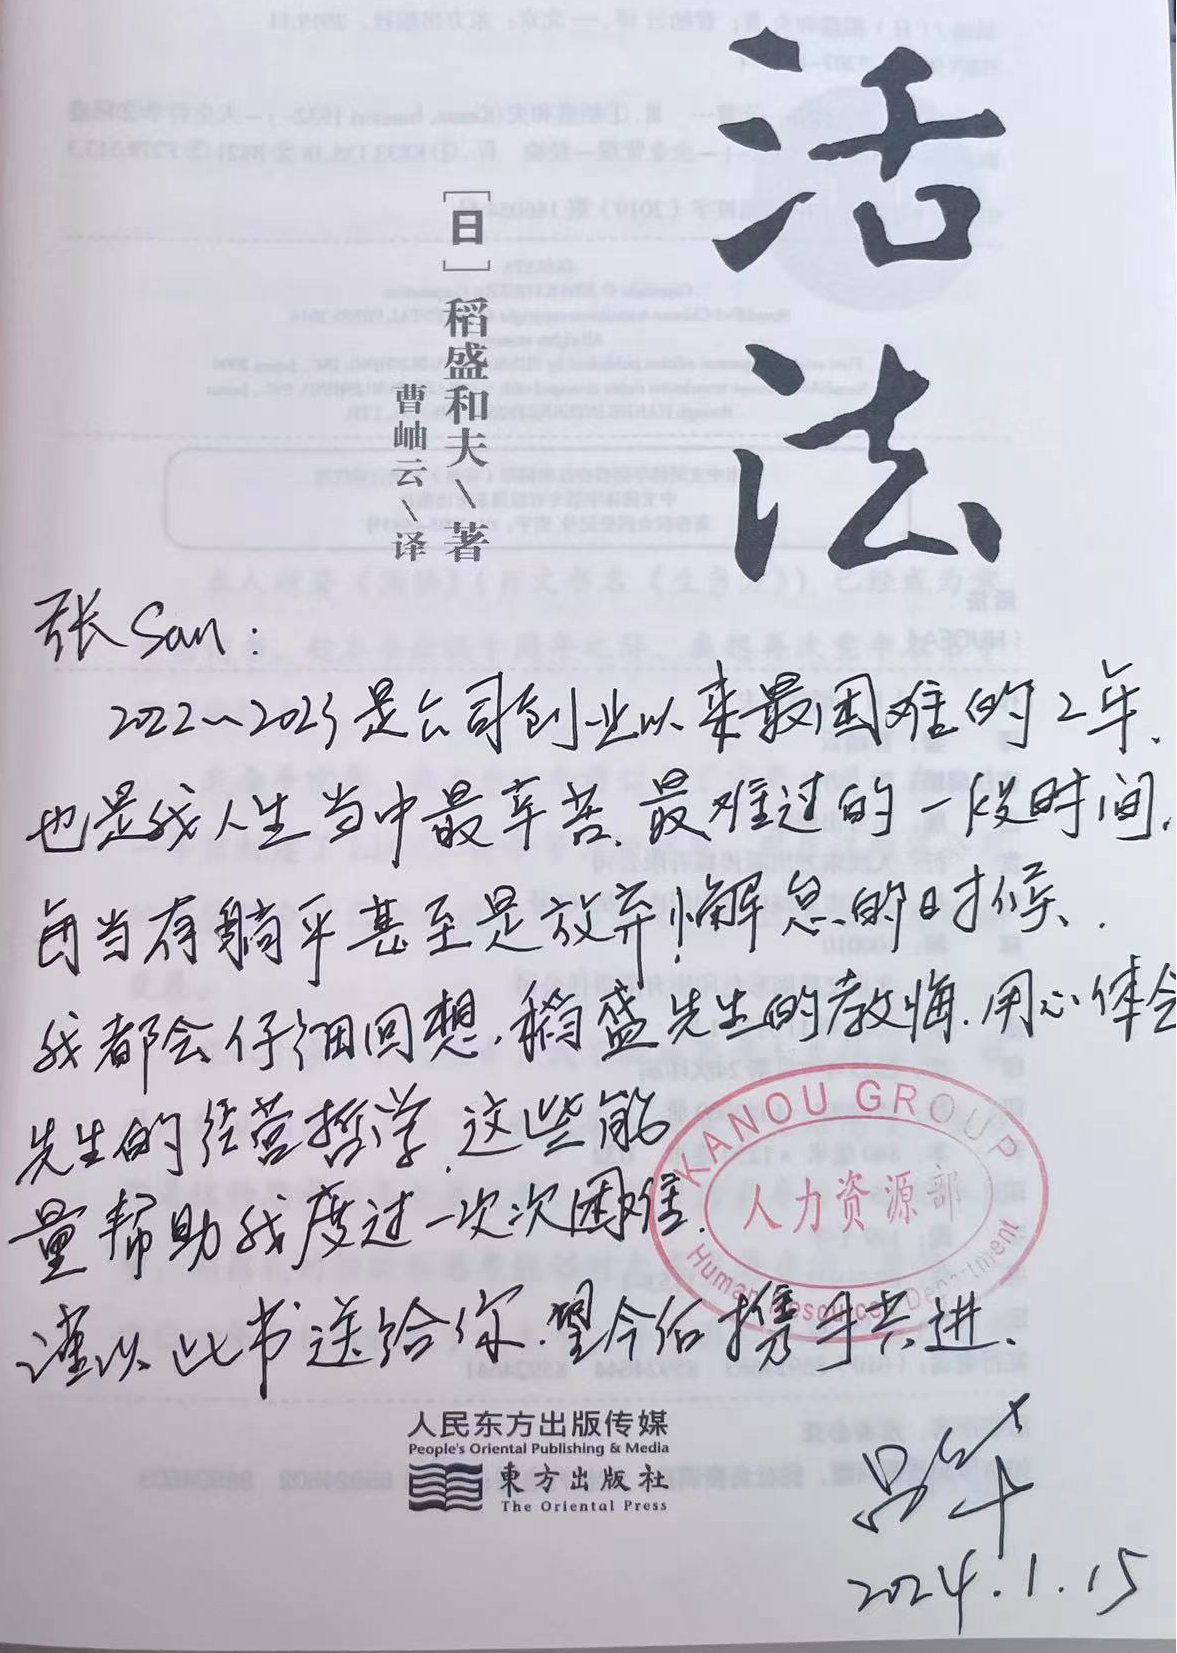 活法
[日]稻盛和夫\著
曹岫云\译
张San:
2022~2023是公司创业以来最困难的2年.
也是我人生当中最辛苦.最难过的一段时间.
每当有躺平甚至是放弃懈怠的时候.
我都会仔细回想.稻盛先生的教悔.用心体会
先生的经营哲学.这些能
量帮助我度过一次次困难.
谨以此书送给你.望今后携手共进.
KANOU GROUP
人力资源部
Human Resources Department
人民东方出版传媒
People's Oriental Publishing & Media
東方出版社
The Oriental Press
2024.1.15